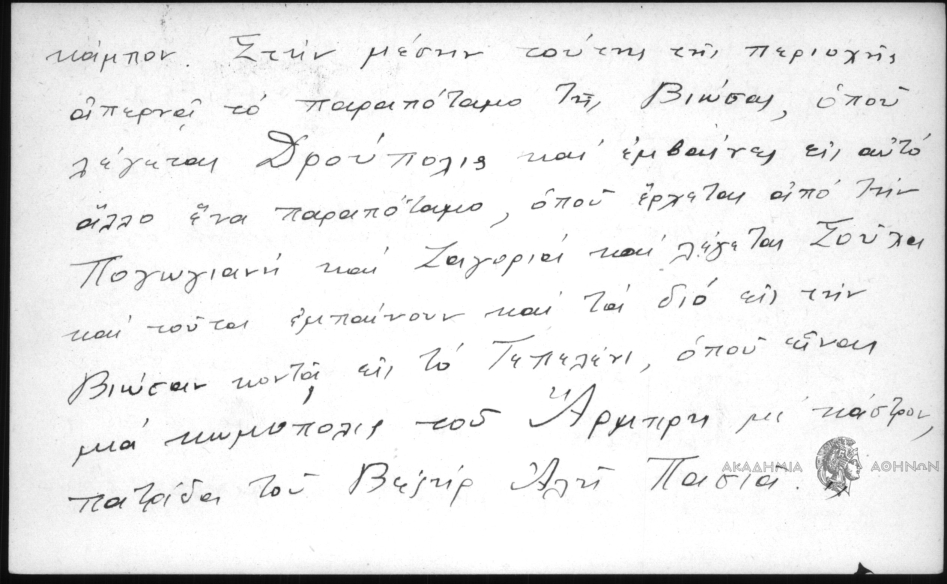 κάμπον. Στὴν μέσην τούτης τῆς περιοχῆς
ἀπερνᾶ τὸ παραπόταμο τῆς Βιώσας, ὁποῦ
λέγεται Δρούπολις καὶ ἐμβαίνει εἰς αὐτὸ
ἄλλο ἕνα παραπόταμο, ὁποῦ ἔρχεται ἀπὸ τὴν
Πογωγιανὴ καὶ Ζαγοριὰ καὶ λέγεται Σοῦχα
καὶ τοῦτα ἐμπαίνουν καὶ τὰ διὸ εἰς τὴν
Βιώσαν κοντὰ, εἰς τὸ Τεπελένι, ὁποῦ εἶναι
μιὰ κωμόπολις τοῦ Ἄρμπρη μὲ κάστρον,
πατρίδα τοῦ Βεζὶρ Ἀλῆ Πασιᾶ. »
ΑΚΑΔΗΜΙΑ ΑΘΗΝΩΝ